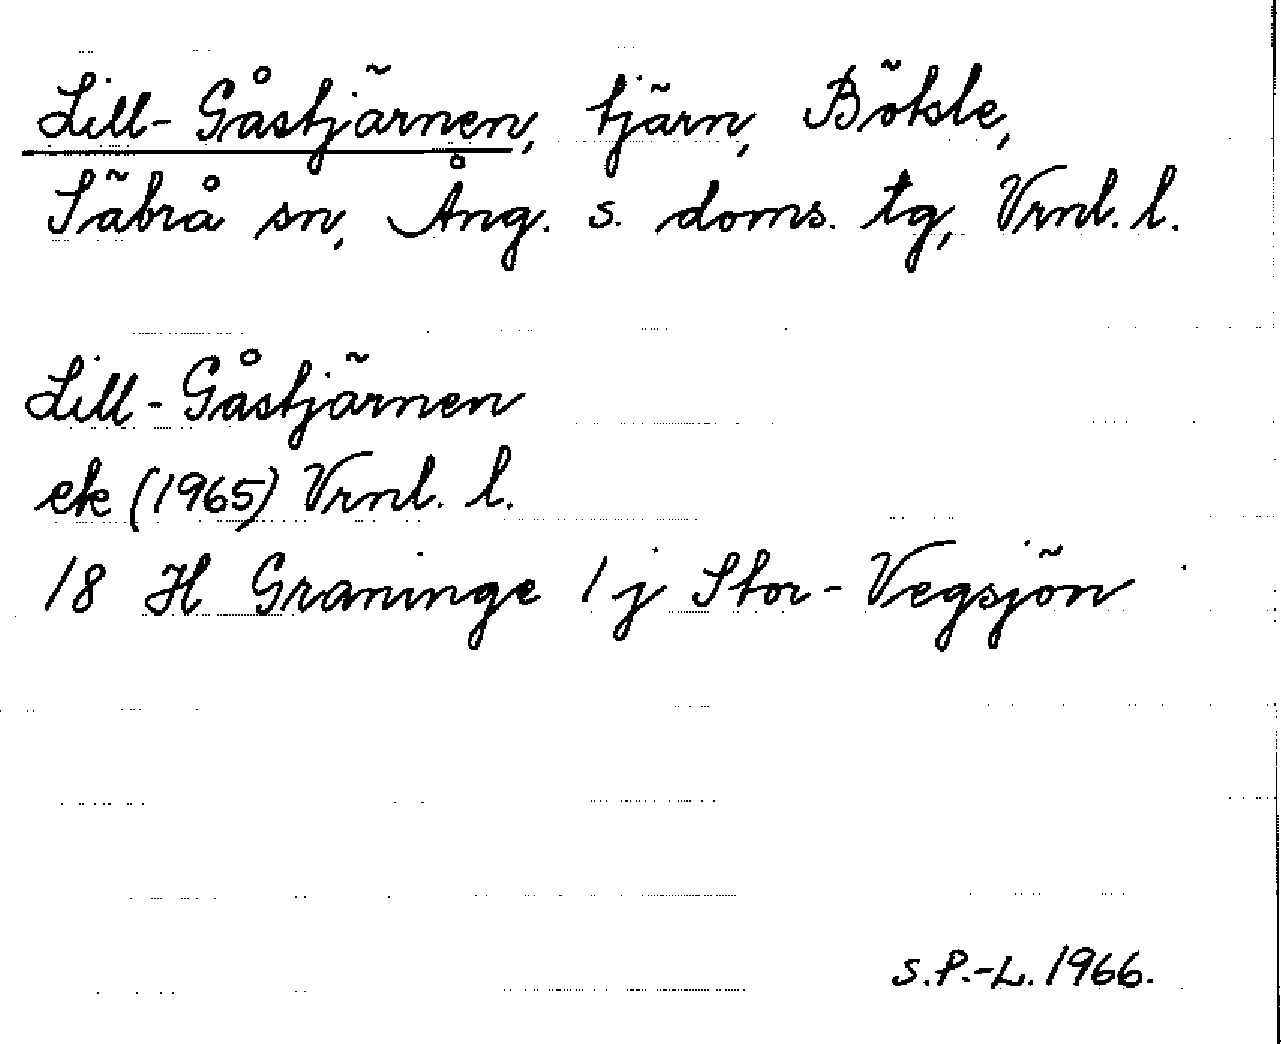 Lill-Gåstjärnen, tjärn, Bölsle,
Säbrå sn, Ång. s. doms. tg, Vrnl. l.
Lill-Gåstjärnen
ek (1965) Vrnl. l.
18 H Graninge 1 j Stor-Vegsjön
S.P.-L. 1966.